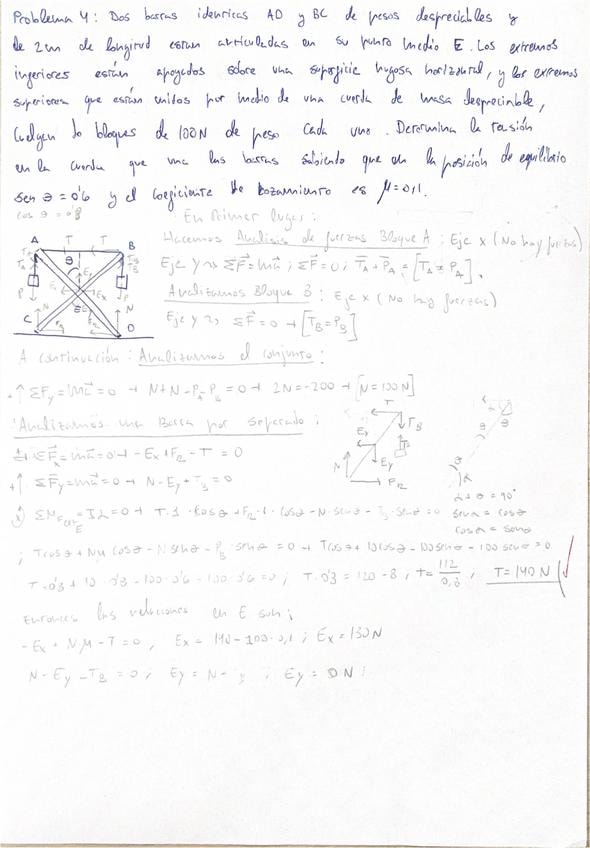 Problema 4: Dos barras identicas AD y BC de pesos despreciables y
de 2m de longitud estan articuladas en su punto medio E. Los extremos
inferiores están apoyados sobre una superficie rugosa horizontal, y los extremos
superiores que están unidos por medio de una cuerda de masa despreciable,
cuelgan lo bloques de 100N de peso cada uno. Determina la tensión
en la cuerda que une las barras sabiendo que en la posición de equilibrio
sen θ = 0'6 y el coeficiente de rozamiento es μ=0,1.
cos θ = 0'8
En Primer lugar:
Hacemos Analisis de fuerzas Bloque A: Eje x (No hay fuerzas)
Eje y → ΣF=ma; ΣF=0; TA+PA = [TA=PA].
Analizamos Bloque B: Eje x (No hay fuerzas)
Eje y →, ΣF=0 → [TB=PB]
A T T B
θ
P P
Ex
N N
C D
A continuación: Analizamos el conjunto:
+↑ ΣFy=ma=0 → N+N-PA-PB=0 → 2N=-200 → [N=100N]
Analizamos una Barra por separado:
ΣFx=ma=0 → -Ex+FR-T=0
+↑ ΣFy=ma=0 → N-Ey-TB=0
T
TB
Ex
Ey
N
FR
θ
θ
α
α+θ=90°
senα=cosθ
cosα=senθ
ΣMF =Iα=0 → T·1·cosθ+FR·1·cosθ-N·senθ-TB·senθ=0
; Tcosθ+Nμcosθ-Nsenθ-PB·senθ=0 → Tcosθ+10cosθ-100senθ-100senθ=0
T·0'8+10·0'8-100·0'6-100·0'6=0; T·0'8=120-8, T=112/0,8; T=140N
Entonces las relaciones en E son;
-Ex+Nμ-T=0, Ex=140-100·0,1; Ex=130N
N-Ey-TB=0; Ey=N- ; Ey=0N;